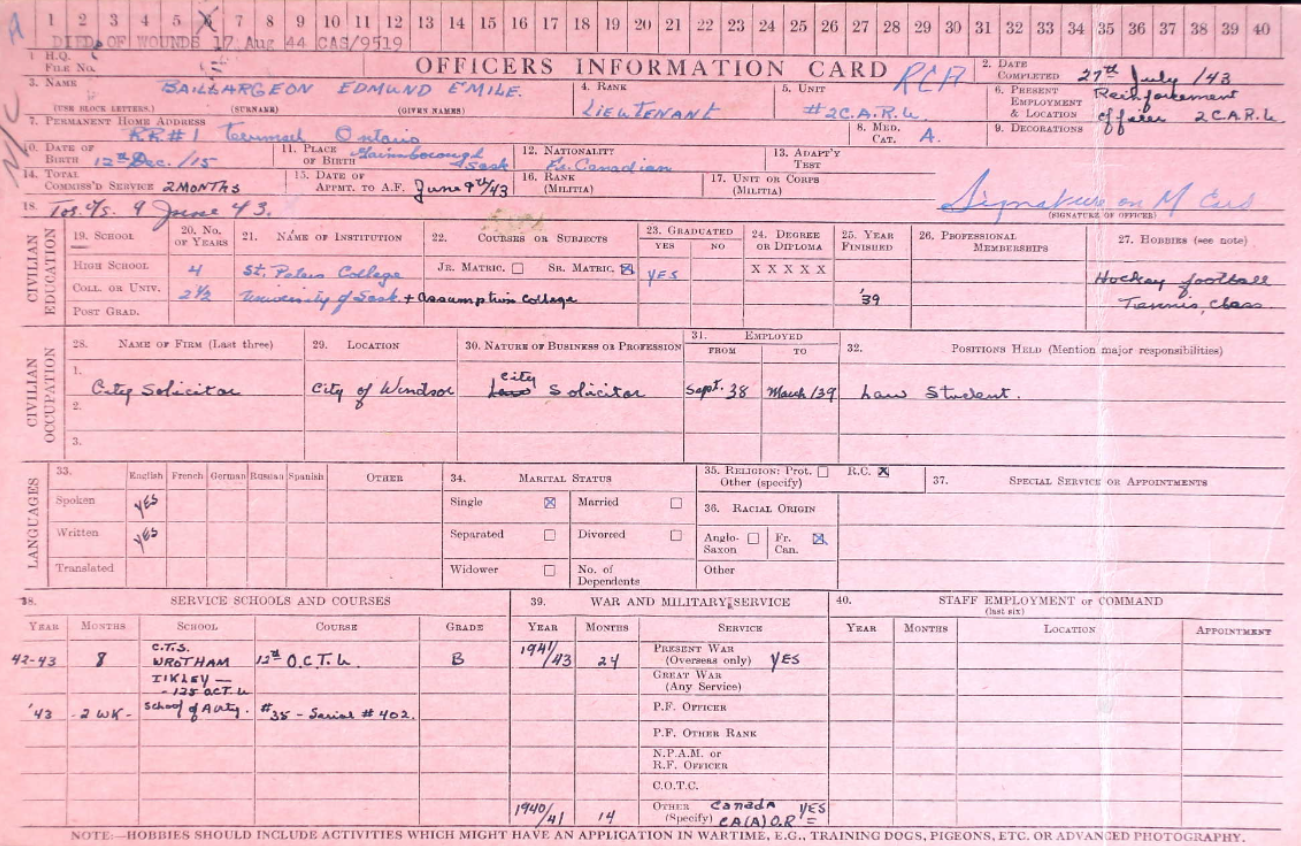 1 2 3 4 5 6 7 8 9 10 11 12 13 14 15 16 17 18 19 20 21 22 23 24 25 26 27 28 29 30 31 32 33 34 35 36 37 38 39 40
A
DIED OF WOUNDS 17 Aug 44 CAS/9519
1 H.Q. FILE No.
OFFICERS INFORMATION CARD RCA
2. DATE COMPLETED 27th July /43
3. NAME BAILLARGEON EDMUND EMILE.
(USE BLOCK LETTERS.) (SURNAME) (GIVEN NAMES)
4. RANK LIEUTENANT
5. UNIT #2 C.A.R.U.
6. PRESENT EMPLOYMENT & LOCATION Reinforcement officer 2 C.A.R.U
N/C
7. PERMANENT HOME ADDRESS RR#1 Tecumseh Ontario
8. MED. CAT. A.
9. DECORATIONS
10. DATE OF BIRTH 12th Dec. /15
11. PLACE OF BIRTH Gainsborough Sask
12. NATIONALITY Fr. Canadian
13. ADAPT'Y TEST
14. TOTAL COMMISS'D SERVICE 2 MONTHS
15. DATE OF APPMT. TO A.F. June 9th/43
16. RANK (MILITIA)
17. UNIT OR CORPS (MILITIA)
Signature on M Card
(SIGNATURE OF OFFICER)
18. Tos. o/s. 9 June 43.
CIVILIAN EDUCATION
19. SCHOOL 20. No. OF YEARS 21. NAME OF INSTITUTION 22. COURSES OR SUBJECTS 23. GRADUATED YES NO 24. DEGREE OR DIPLOMA 25. YEAR FINISHED 26. PROFESSIONAL MEMBERSHIPS 27. HOBBIES (see note)
HIGH SCHOOL 4 St. Peters College JR. MATRIC. ☐ SR. MATRIC. ☒ YES X X X X X Hockey football
COLL. OR UNIV. 2 1/2 University of Sask. + Assumption College '39 Tennis, Chess
POST GRAD.
CIVILIAN OCCUPATION
28. NAME OF FIRM (Last three) 29. LOCATION 30. NATURE OF BUSINESS OR PROFESSION 31. EMPLOYED FROM TO 32. POSITIONS HELD (Mention major responsibilities)
1. City Solicitor City of Windsor Law City Solicitor Sept. 38 March/39 Law Student.
2.
3.
LANGUAGES
33. English French German Russian Spanish OTHER
Spoken YES
Written YES
Translated
34. MARITAL STATUS
Single ☒ Married ☐
Separated ☐ Divorced ☐
Widower ☐ No. of Dependents
35. RELIGION: Prot. ☐ R.C. ☒
Other (specify)
36. RACIAL ORIGIN
Anglo-Saxon ☐ Fr. Can. ☒
Other
37. SPECIAL SERVICE OR APPOINTMENTS
38. SERVICE SCHOOLS AND COURSES
YEAR MONTHS SCHOOL COURSE GRADE
42-43 8 C.T.S. WROTHAM 12th O.C.T.U. B
IIKLEY —
- 125 OCT.U
'43 - 2 WK - School of Arty. #35 - Serial # 402.
39. WAR AND MILITARY SERVICE
YEAR MONTHS SERVICE
1941/43 24 PRESENT WAR (Overseas only) YES
GREAT WAR (Any Service)
P.F. OFFICER
P.F. OTHER RANK
N.P.A.M. or R.F. OFFICER
C.O.T.C.
1940/41 14 OTHER (Specify) Canada CA(A) O.R YES
40. STAFF EMPLOYMENT or COMMAND
(last six)
YEAR MONTHS LOCATION APPOINTMENT
NOTE:—HOBBIES SHOULD INCLUDE ACTIVITIES WHICH MIGHT HAVE AN APPLICATION IN WARTIME, E.G., TRAINING DOGS, PIGEONS, ETC. OR ADVANCED PHOTOGRAPHY.